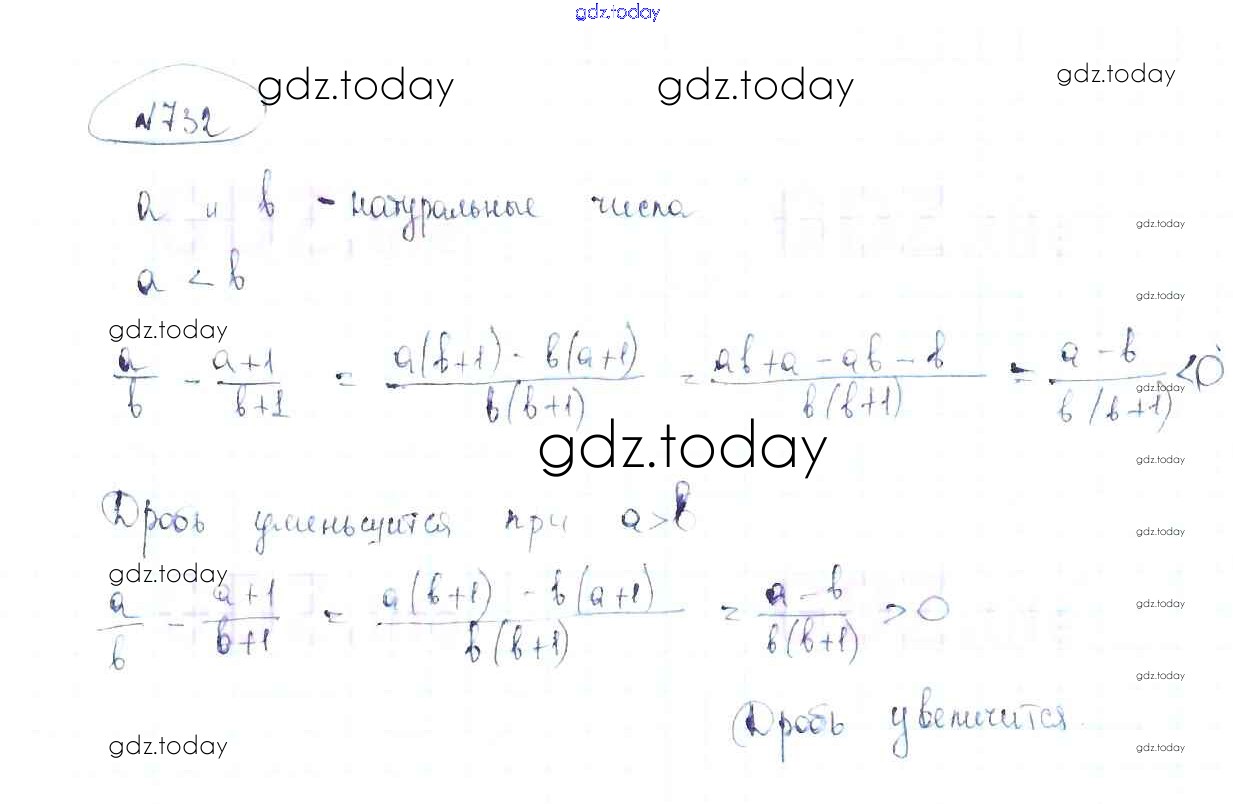 gdz.today
gdz.today gdz.today gdz.today
№732
a и b - натуральные числа
gdz.today
a < b
gdz.today
gdz.today
a/b - (a+1)/(b+1) = (a(b+1) - b(a+1))/(b(b+1)) = (ab+a-ab-b)/(b(b+1)) = (a-b)/(b(b+1)) < 0
gdz.today
gdz.today
gdz.today
Дробь уменьшится при a>b
gdz.today
gdz.today
a/b - (a+1)/(b+1) = (a(b+1) - b(a+1))/(b(b+1)) = (a-b)/(b(b+1)) > 0
gdz.today
gdz.today
Дробь увеличится.
gdz.today
gdz.today